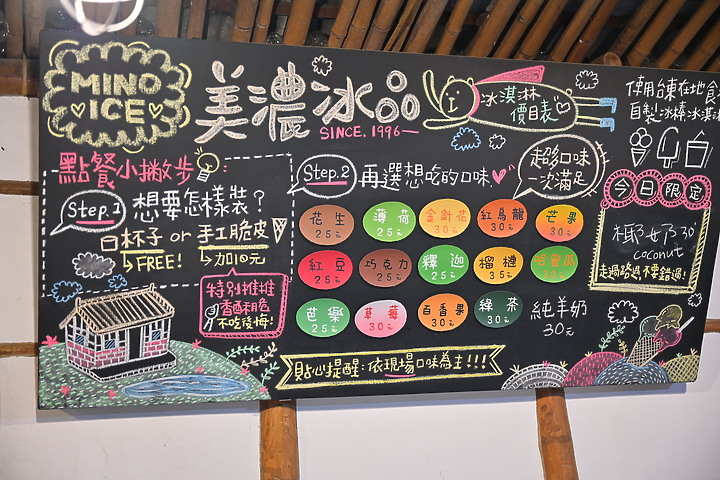 MINO
ICE
美濃冰品
SINCE. 1996
冰淇淋
價目表
使用台東在地食
自製冰棒冰淇淋
點餐小撇步:
Step.1 想要怎樣裝?
白杯子 or 手工脆皮
FREE! 加10元
特別推推
香酥脆
不吃後悔!
Step.2 再選想吃的口味
超多口味
一次滿足
花生 25元
薄荷 25元
金針花 30元
紅烏龍 30元
芒果 30元
紅豆 25元
巧克力 25元
釋迦 25元
榴槤 35元
哈密瓜
芭樂 25元
草莓 30元
百香果 30元
綠茶 30元
純羊奶
30元
今日限定
椰奶 30
coconut
走過路過,不要錯過!
貼心提醒:依現場口味為主!!!